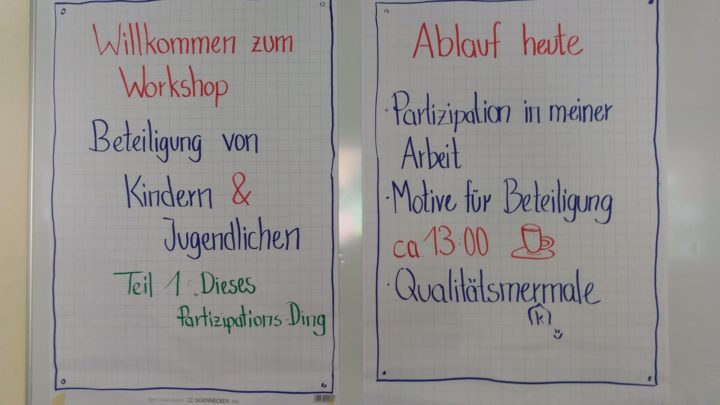 Willkommen zum
Workshop
Beteiligung von
Kindern &
Jugendlichen
Teil 1: „Dieses
Partizipations-Ding
SOENNECKEN
Ablauf heute
· Partizipation in meiner
Arbeit
· Motive für Beteiligung
ca 13:00
· Qualitätsmermale
k